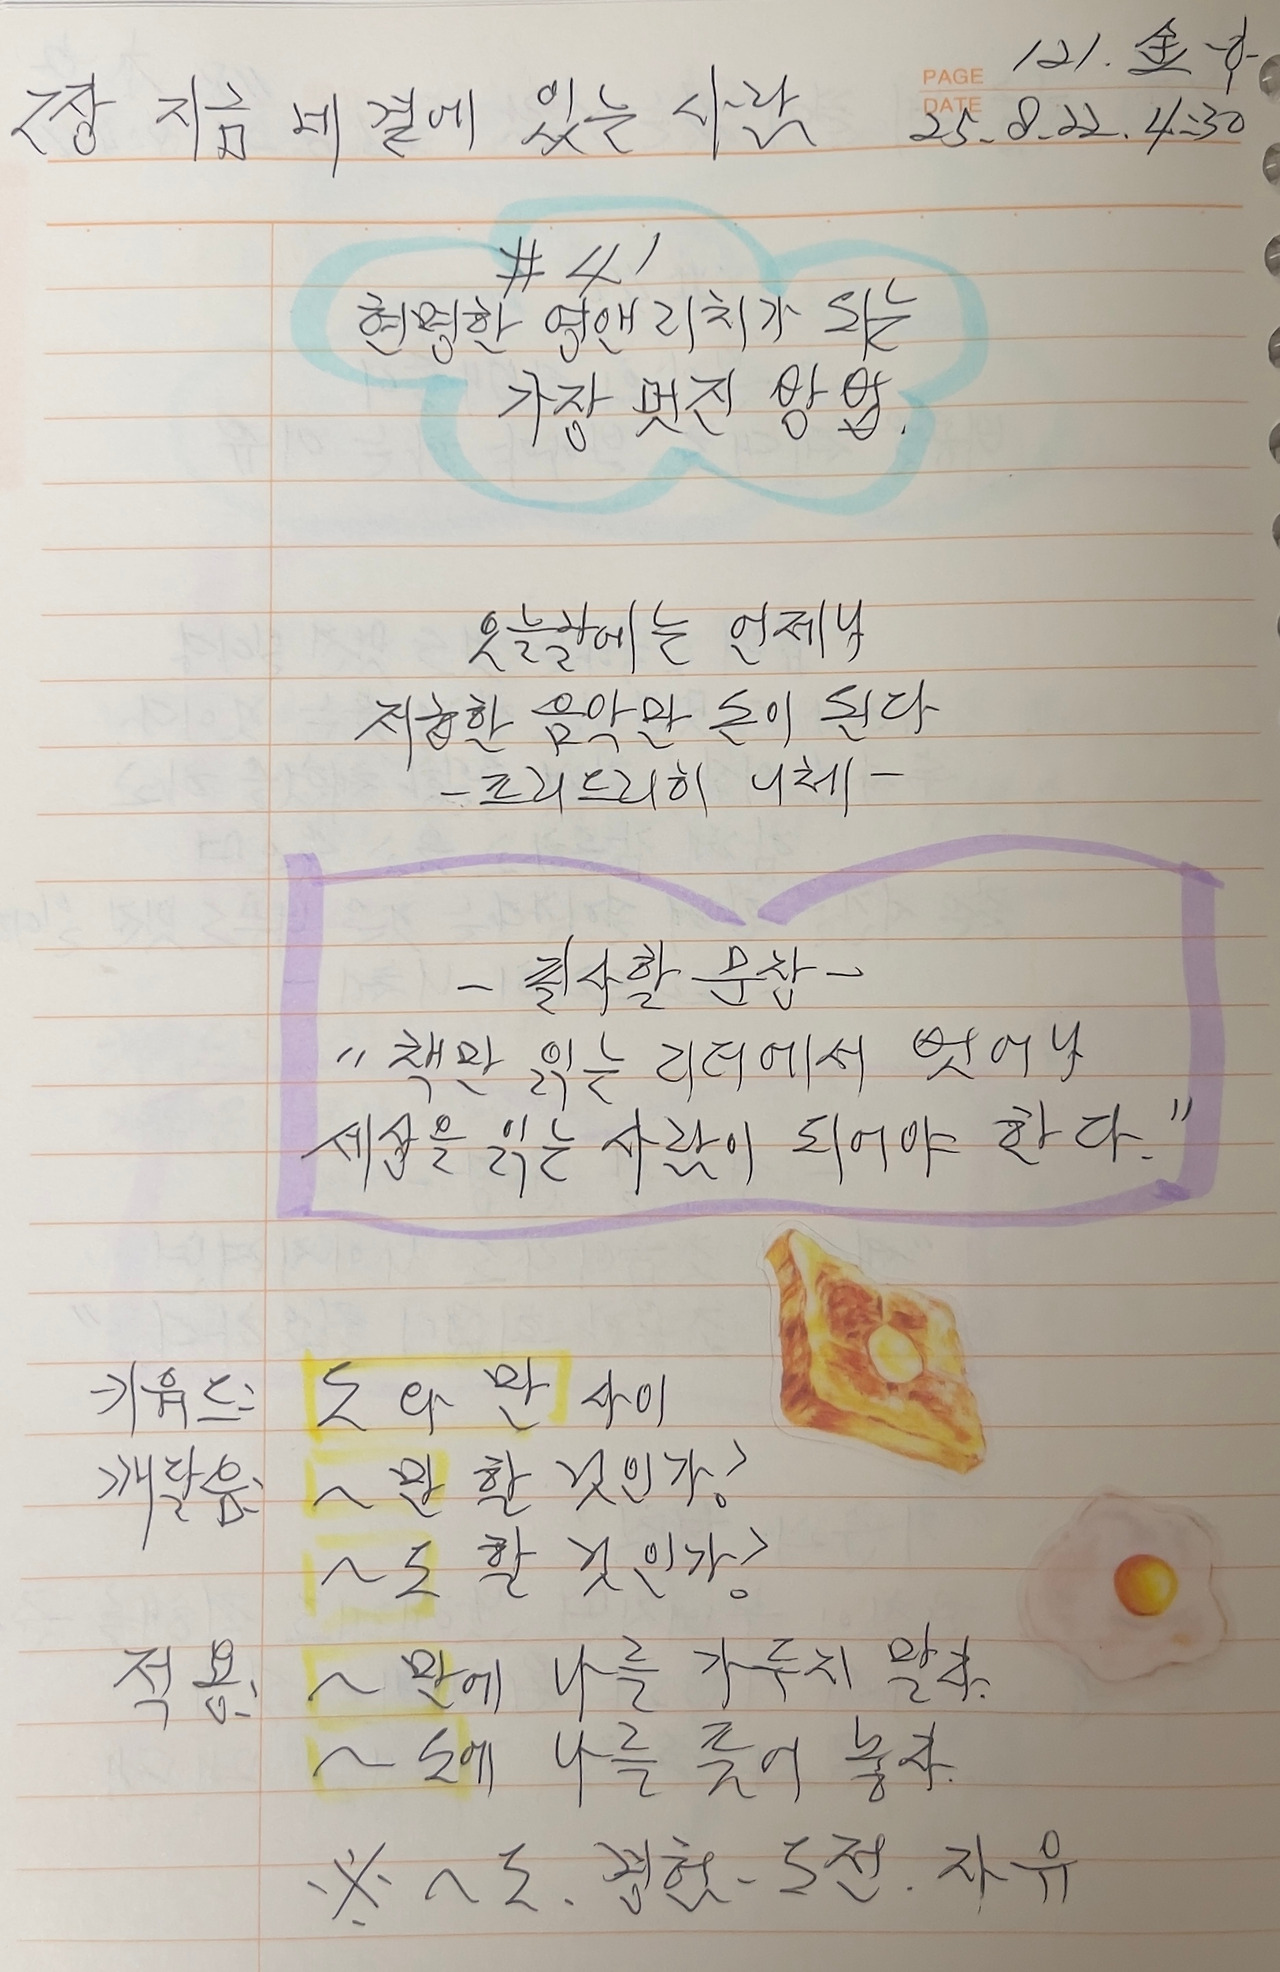 PAGE 121. 金 中
DATE 25-8-22. 4:30
2장 지금 네 곁에 있는 사람
#41
현명한 영앤리치가 되는
가장 멋진 방법.
오늘날에는 언제나
저능한 음악만 돈이 된다
-프리드리히 니체-
- 필사할 문장-
"책만 읽는 리더에서 벗어나
세상을 읽는 사람이 되어야 한다."
키워드: 도 와 만 사이
깨달음: ~만 할 것인가?
~도 할 것인가?
적용: ~만에 나를 가두지 말자.
~도에 나를 풀어 놓자.
※ ~도. 경험- 도전. 자유